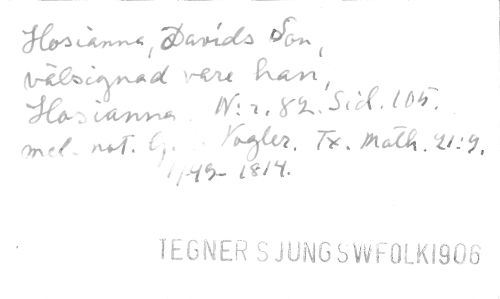 Hosianna, Davids Son,
välsignad vare han,
Hosianna. N:r. 82. Sid. 105.
mel. not. G. Vogler. Tx. Math. 21:9.
1749-1814.
TEGNER SJUNG SWFOLK1906